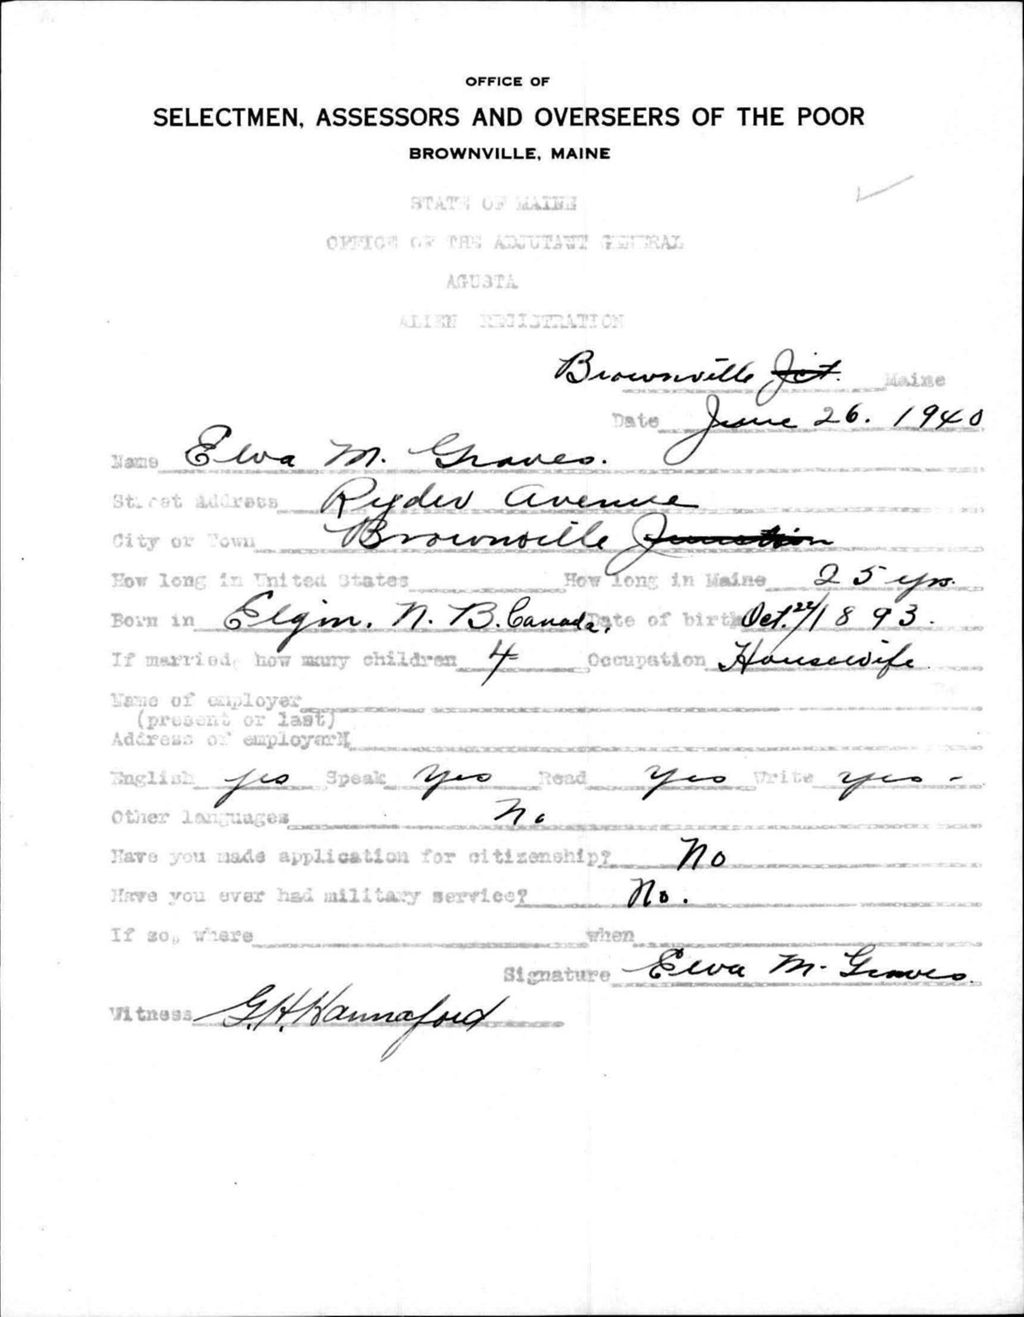 OFFICE OF
SELECTMEN, ASSESSORS AND OVERSEERS OF THE POOR
BROWNVILLE, MAINE
STATE OF MAINE
OFFICE OF THE ADJUTANT GENERAL
AGUSTA
ALIEN REGISTRATION
Brownville Jct. Maine
Date June 26. 1940
Name Elva M. Graves.
Street Address Ryder Avenue
City or Town Brownville Junction
How long in United States How long in Maine 25 yrs.
Born in Elgin. N. B. Canada. Date of birth Oct. 22/1893.
If married, how many children 4 Occupation Housewife
Name of employer
(present or last)
Address of employer
English yes Speak Yes Read Yes Write yes -
Other languages No
Have you made application for citizenship? No
Have you ever had military service? No.
If so, where when
Signature Elva M. Graves.
Witness G.H. Hannaford